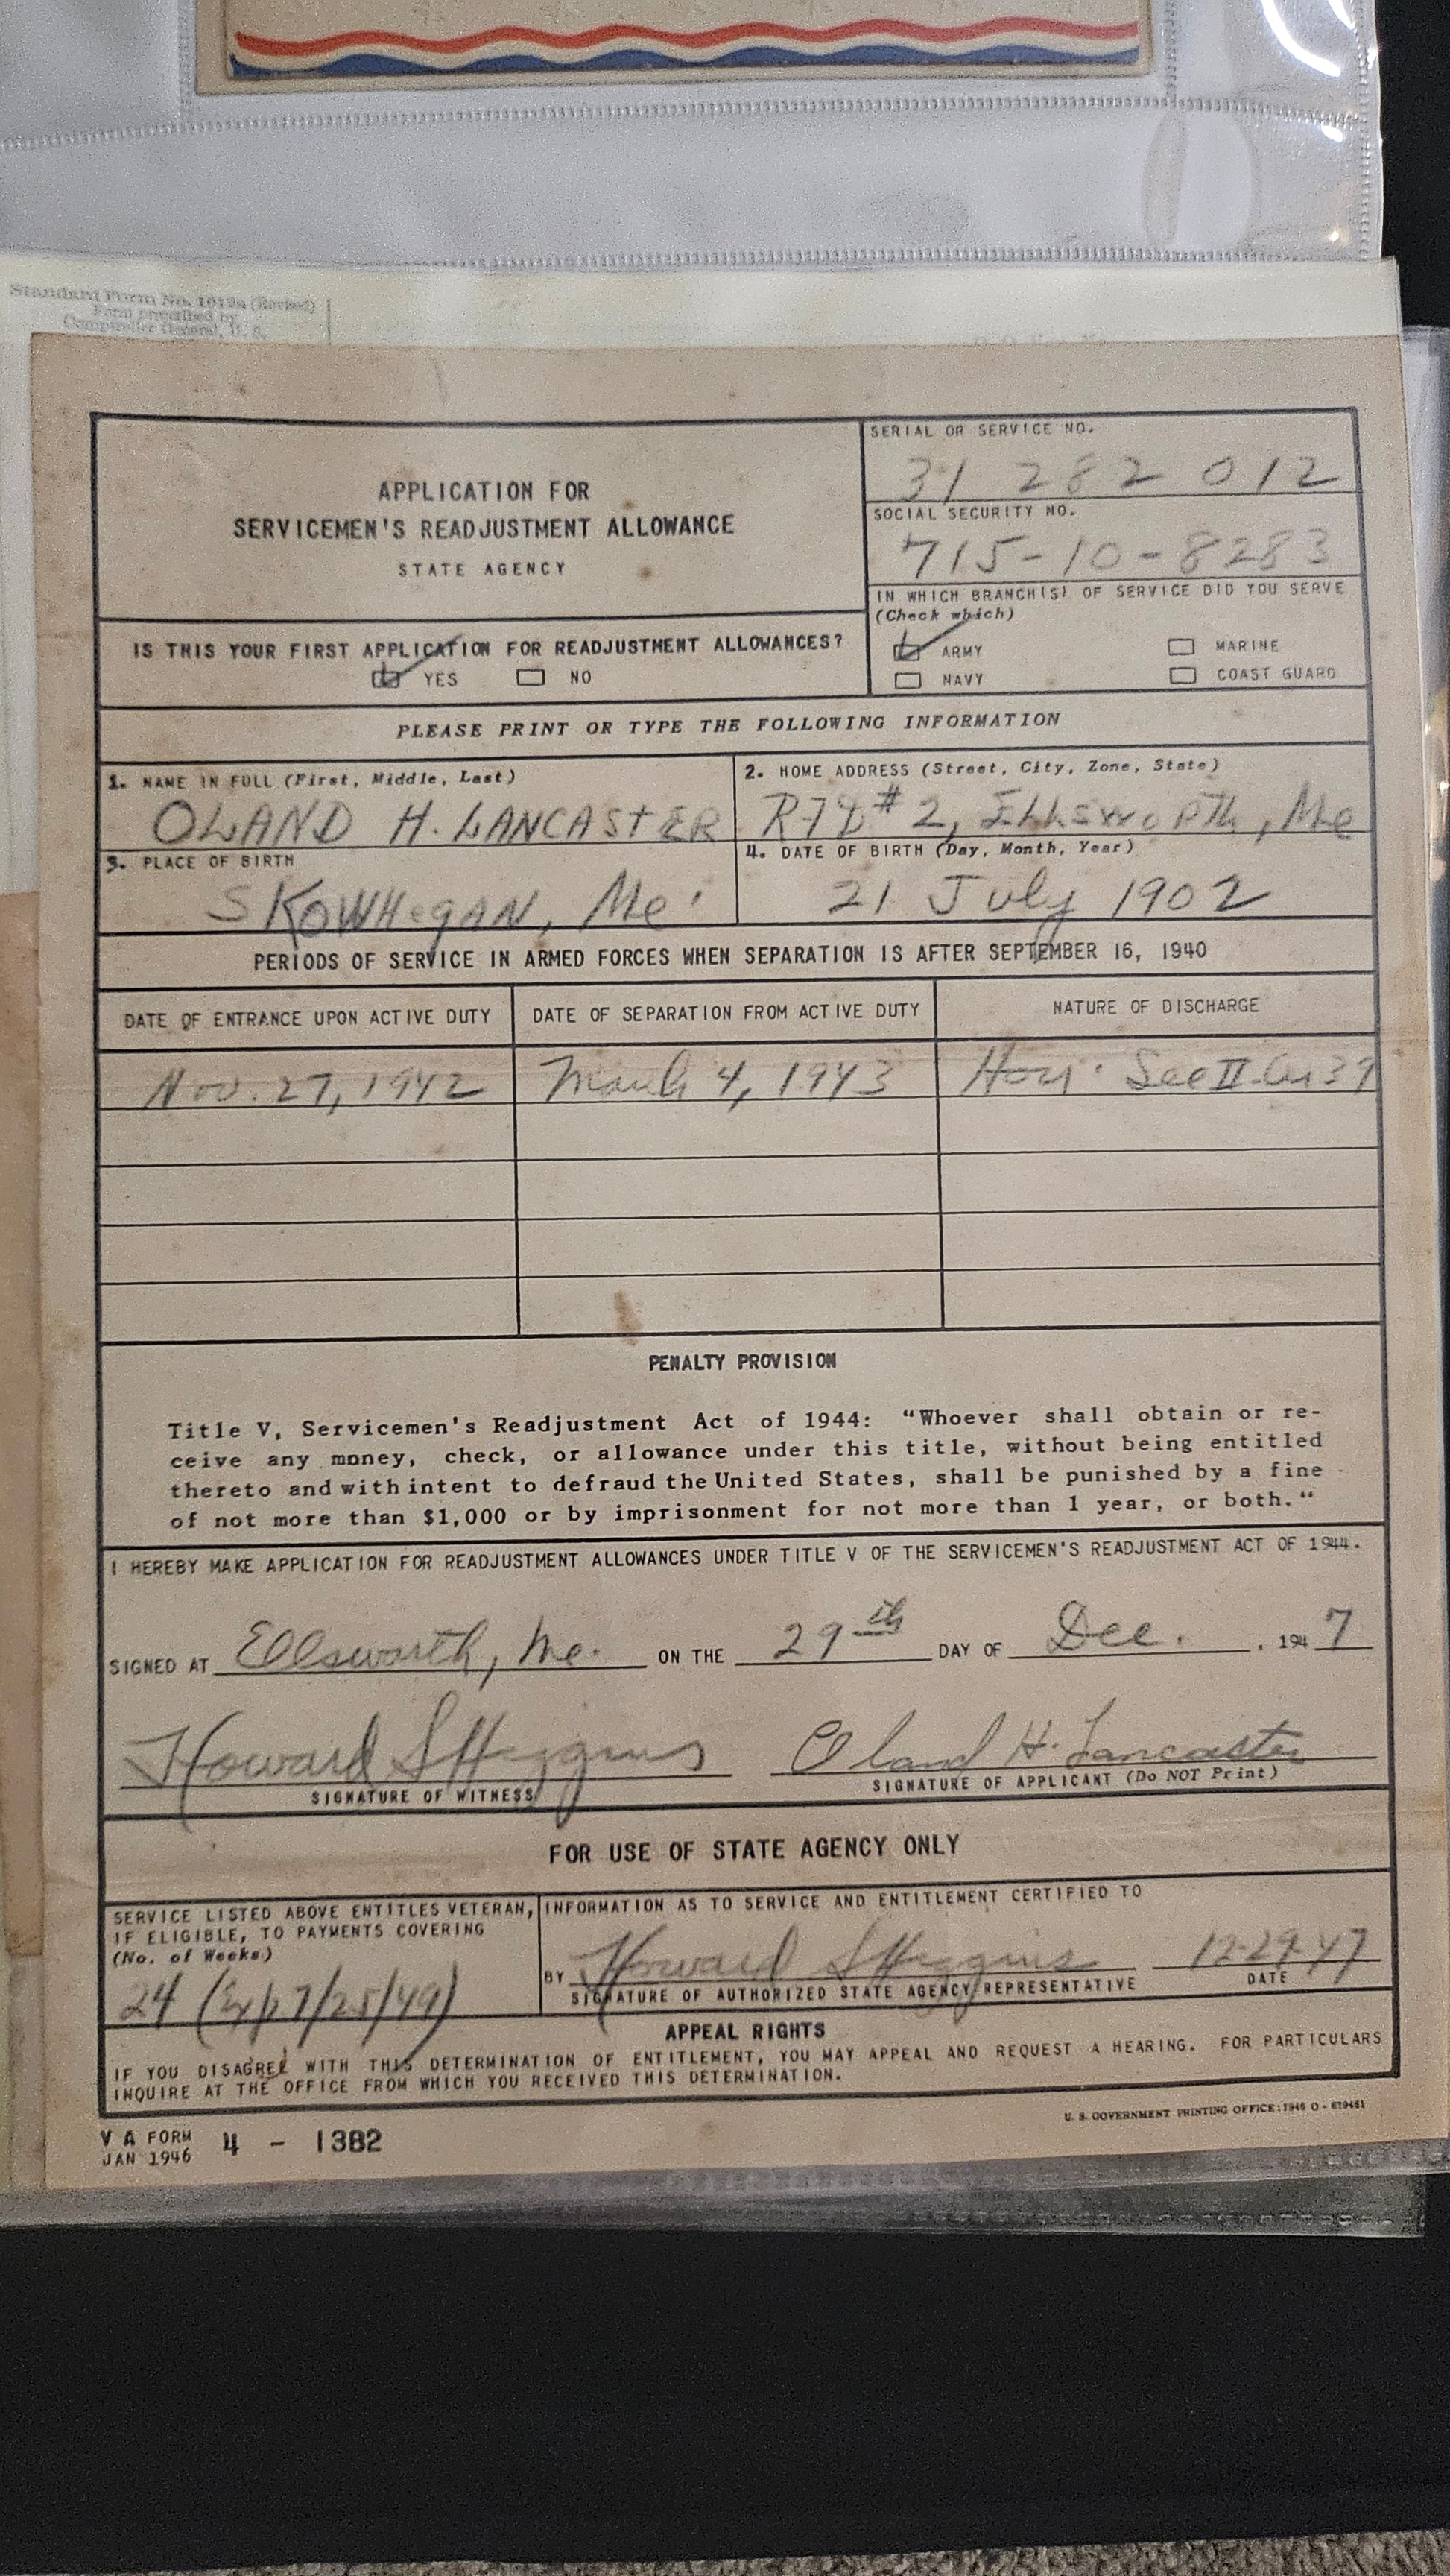 Standard Form No. 1012a (Revised)
Form prescribed by
Comptroller General, U. S.
APPLICATION FOR
SERVICEMEN'S READJUSTMENT ALLOWANCE
STATE AGENCY
SERIAL OR SERVICE NO.
31 282 012
SOCIAL SECURITY NO.
715-10-8283
IN WHICH BRANCH(S) OF SERVICE DID YOU SERVE
(Check which)
ARMY MARINE
NAVY COAST GUARD
IS THIS YOUR FIRST APPLICATION FOR READJUSTMENT ALLOWANCES?
YES NO
PLEASE PRINT OR TYPE THE FOLLOWING INFORMATION
1. NAME IN FULL (First, Middle, Last)
OLAND H. LANCASTER
2. HOME ADDRESS (Street, City, Zone, State)
RFD #2, Ellsworth, Me
3. PLACE OF BIRTH
SKOWHEGAN, Me.
4. DATE OF BIRTH (Day, Month, Year)
21 July 1902
PERIODS OF SERVICE IN ARMED FORCES WHEN SEPARATION IS AFTER SEPTEMBER 16, 1940
DATE OF ENTRANCE UPON ACTIVE DUTY DATE OF SEPARATION FROM ACTIVE DUTY NATURE OF DISCHARGE
Nov. 27, 1942 March 4, 1943 Hon. Sec II
PENALTY PROVISION
Title V, Servicemen's Readjustment Act of 1944: "Whoever shall obtain or re-
ceive any money, check, or allowance under this title, without being entitled
thereto and with intent to defraud the United States, shall be punished by a fine
of not more than $1,000 or by imprisonment for not more than 1 year, or both."
I HEREBY MAKE APPLICATION FOR READJUSTMENT ALLOWANCES UNDER TITLE V OF THE SERVICEMEN'S READJUSTMENT ACT OF 1944.
SIGNED AT Ellsworth, Me. ON THE 29th DAY OF Dec. , 1947
Howard S Higgins Oland H. Lancaster
SIGNATURE OF WITNESS SIGNATURE OF APPLICANT (Do NOT Print)
FOR USE OF STATE AGENCY ONLY
SERVICE LISTED ABOVE ENTITLES VETERAN,
IF ELIGIBLE, TO PAYMENTS COVERING
(No. of Weeks)
24 (Exp 7/25/49)
INFORMATION AS TO SERVICE AND ENTITLEMENT CERTIFIED TO
BY Howard S Higgins 12-29-47
SIGNATURE OF AUTHORIZED STATE AGENCY REPRESENTATIVE DATE
APPEAL RIGHTS
IF YOU DISAGREE WITH THIS DETERMINATION OF ENTITLEMENT, YOU MAY APPEAL AND REQUEST A HEARING. FOR PARTICULARS
INQUIRE AT THE OFFICE FROM WHICH YOU RECEIVED THIS DETERMINATION.
VA FORM
JAN 1946 4 - 1382
U. S. GOVERNMENT PRINTING OFFICE: 1946 O - 679461